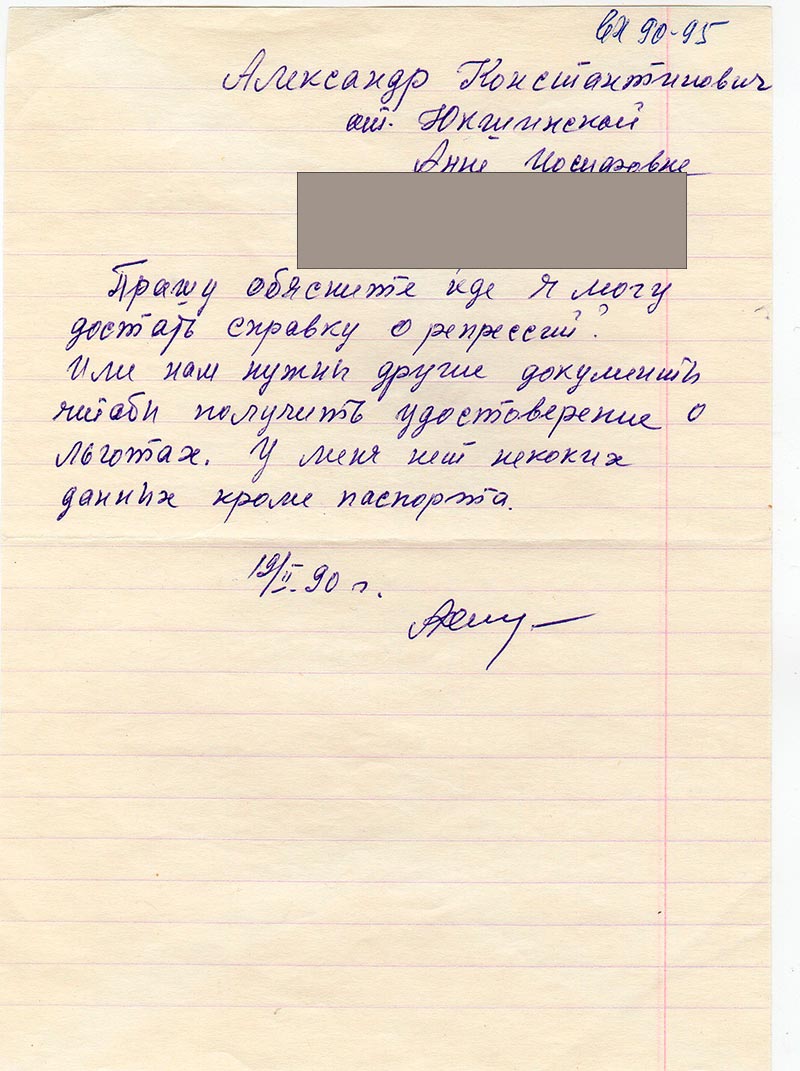 вх 90-95
Александр Константинович
от. Юкшинской
Анне Иосифовне
Прашу обясните где я могу
достать справку о репрессий?
Или нам нужны другие документы
читаби получить удостоверение о
льготах. У меня нет некоких
данных кроме паспорта.
19/II-90 г.